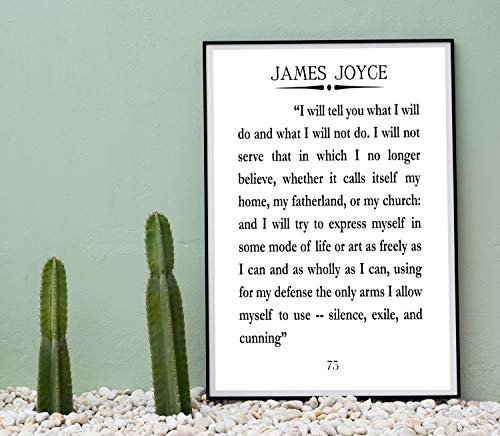 JAMES JOYCE
“I will tell you what I will
do and what I will not do. I will not
serve that in which I no longer
believe, whether it calls itself my
home, my fatherland, or my church:
and I will try to express myself in
some mode of life or art as freely as
I can and as wholly as I can, using
for my defense the only arms I allow
myself to use -- silence, exile, and
cunning”
73